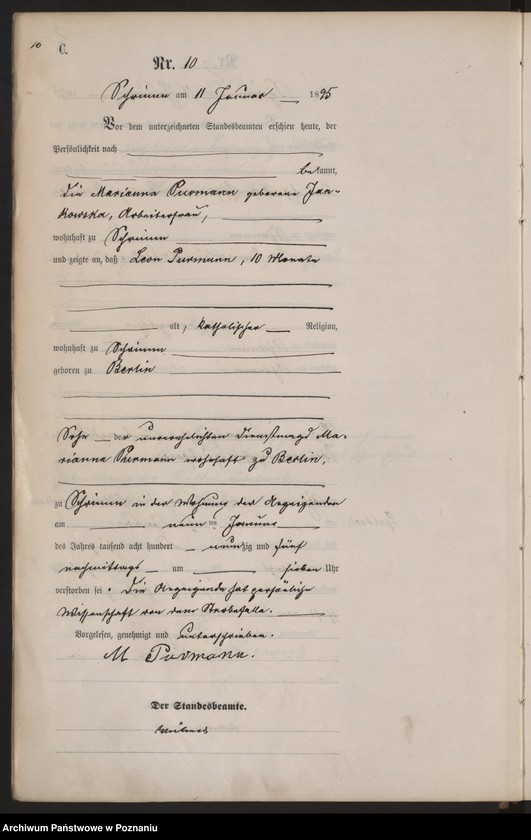 10 C.
Nr. 10
Schrimm am 11 Januar 1895
Vor dem unterzeichneten Standesbeamten erschien heute, der
Persönlichkeit nach
bekannt,
die Marianna Purmann geborene Jan-
kowska, Arbeiterfrau,
wohnhaft zu Schrimm
und zeigte an, daß Leon Purmann, 10 Monate
alt, katholischer Religion,
wohnhaft zu Schrimm
geboren zu Berlin
Sohn der unverehelichten Dienstmagd Ma-
rianna Purmann wohnhaft zu Berlin,
zu Schrimm in der Wohnung der Anzeigenden
am neun ten Januar
des Jahres tausend acht hundert neunzig und fünf
nachmittags um sieben Uhr
verstorben sei. Die Anzeigende hat persönliche
Wissenschaft von dem Sterbefalle.
Vorgelesen, genehmigt und unterschrieben.
M Purmann.
Der Standesbeamte.
Archiwum Państwowe w Poznaniu